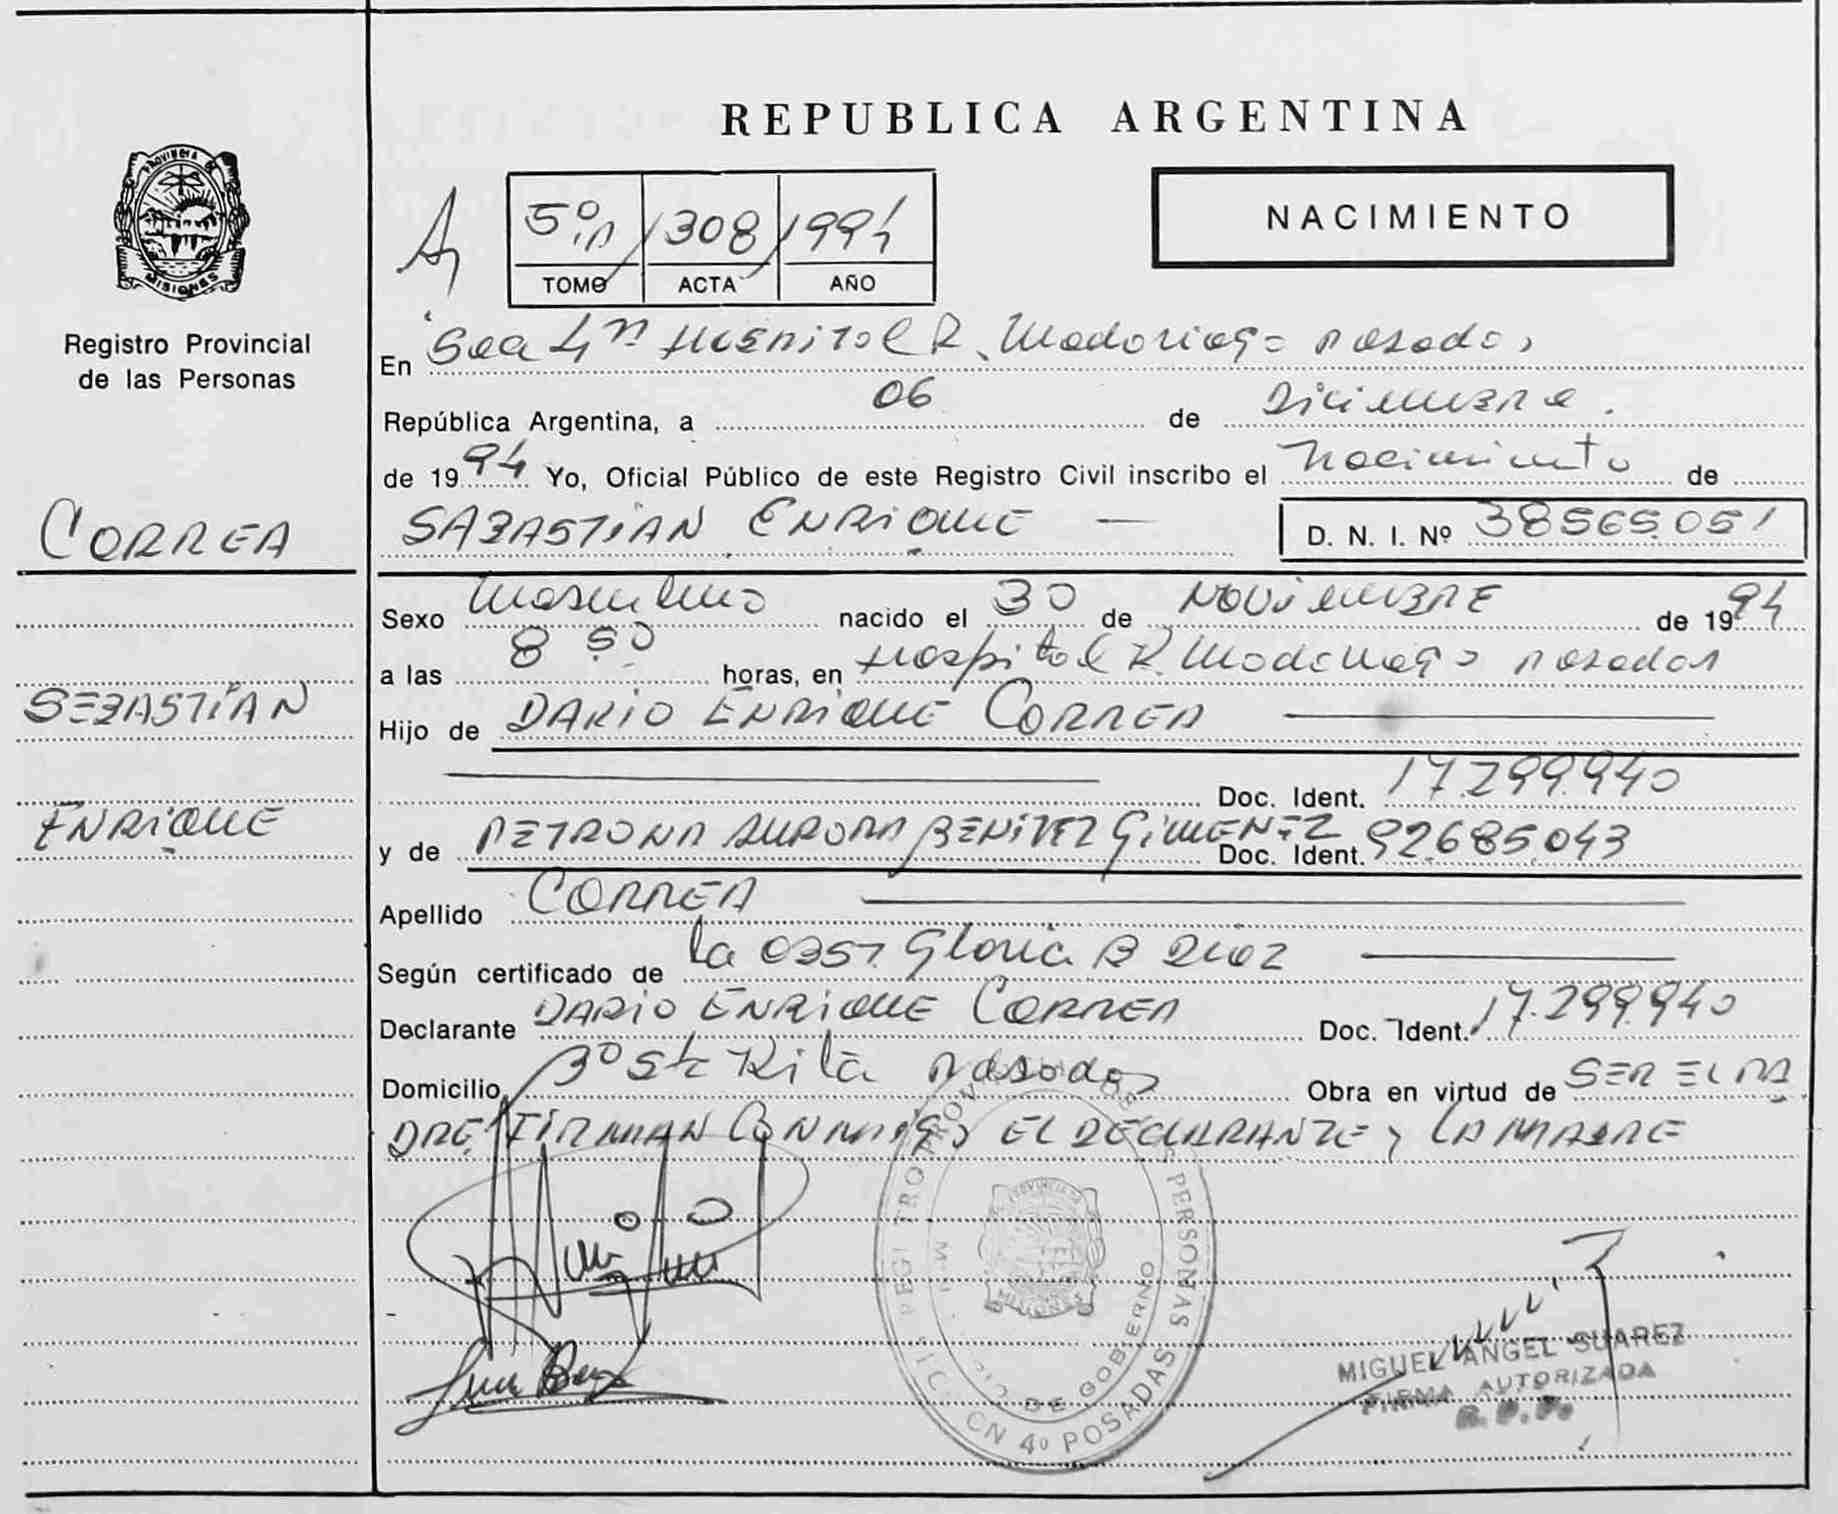 REPUBLICA ARGENTINA
PROVINCIA DE
MISIONES
Registro Provincial
de las Personas
NACIMIENTO
5º 308 1994
TOMO ACTA AÑO
En Sec 4ª Hospital R. Madariaga Posadas
República Argentina, a 06 de Diciembre.
de 1994 Yo, Oficial Público de este Registro Civil inscribo el Nacimiento de
CORREA
SABASTIAN ENRIQUE — D. N. I. Nº 38565.051
Sexo Masculino nacido el 30 de NOVIEMBRE de 1994
a las 8 50 horas, en Hospital R. Madariaga Posadas
SEBASTIÁN
Hijo de DARIO ENRIQUE CORREA
Doc. Ident. 17.299.940
ENRIQUE
y de PETRONA AURORA BENITEZ GIMENEZ Doc. Ident. 92.685.043
Apellido CORREA
Según certificado de la OBST. Gloria B Diaz
Declarante DARIO ENRIQUE CORREA Doc. Ident. 17.299.940
Domicilio Bº Sta Rita Posadas Obra en virtud de SER EL PA
DRE. FIRMAN CONMIGO EL DECLARANTE y LA MADRE
PERSONAS
PROVINCIA DE
MISIONES
DE GOBIERNO
4º POSADAS
MIGUEL ANGEL SUAREZ
FIRMA AUTORIZADA
R. P. P.